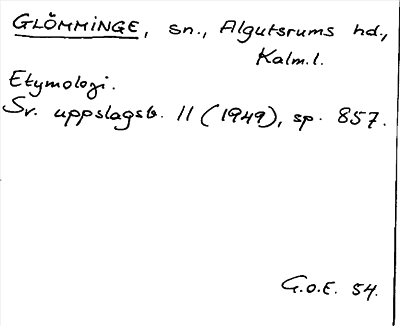 GLÖMMINGE, sn., Algutsrums hd.,
Kalm.l.
Etymologi.
Sv. uppslagsb. 11 (1949), sp. 857.
G.O.E. 54.